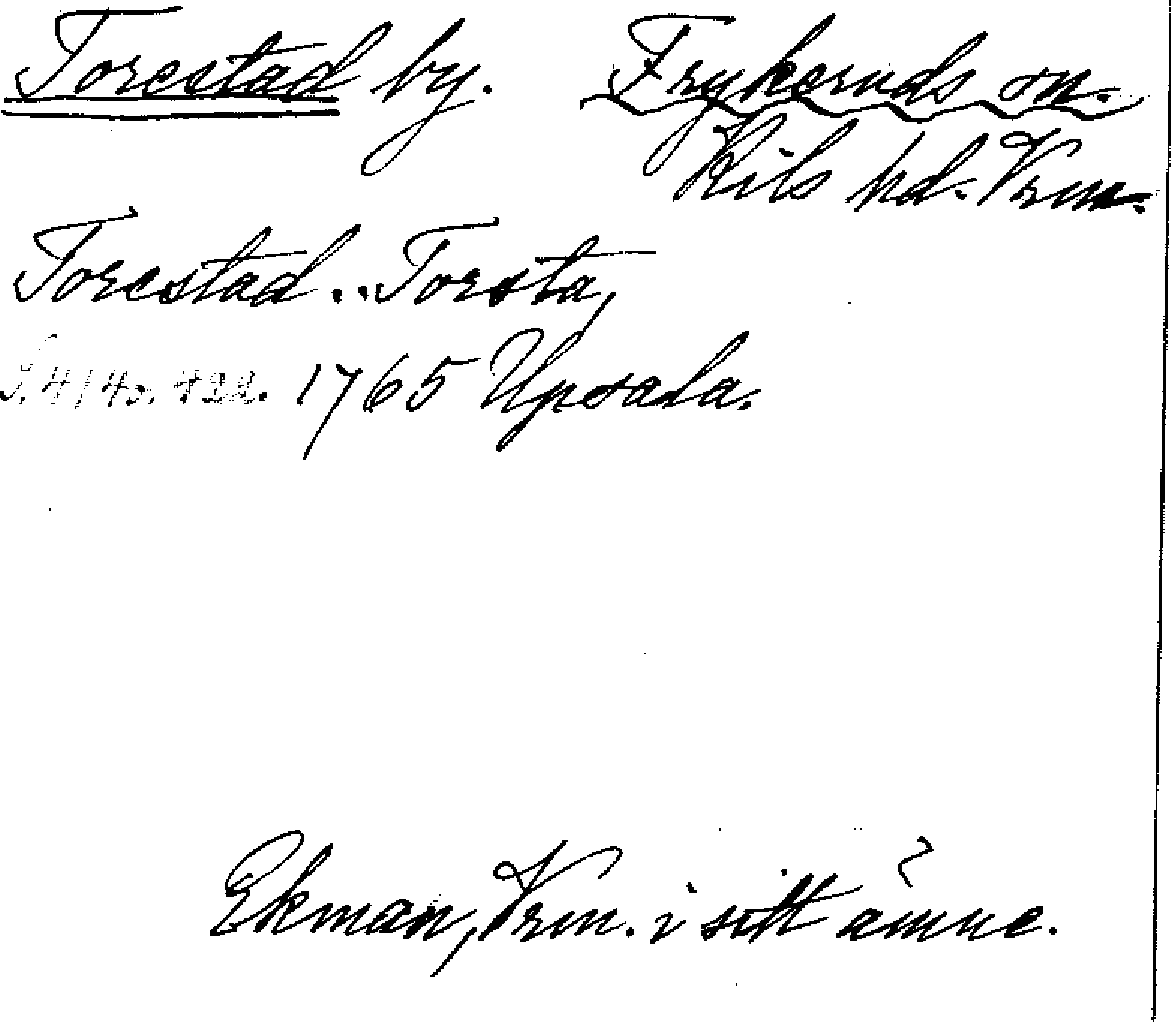 Torestad by. Frykeruds sn.
Kils hd. Vrm.
Torestad..Torsta,
1765 Upsala.
Ekman, Vrm. i sitt ämne.